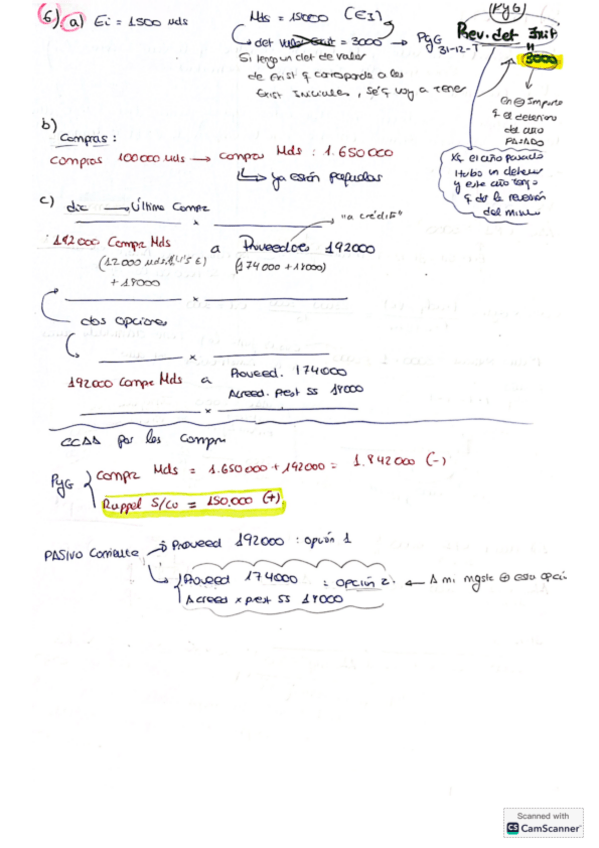 6) a) Ei = 1500 uds
Mds = 15000 (EI)
det = 3000 → PyG
31-12-T
Si tengo un det de valor
de Exist q corresponde a las
Exist Iniciales, sé q voy a tener
(PyG)
Rev. det Exit
3000
en ⊕ Importe
q el deterioro
del año
PASADO
Xq el año pasado
Hubo un deter
y este año tengo
q da la reversión
del mismo
b)
Compras:
Compras 100000 uds → Compra Mds: 1.650000
↳ ya están pagadas
c) dic → Última Compra
"a crédito"
192000 Compra Mds a Proveedores 192000
(12000 uds.14'5 €) (174000 + 18000)
+ 18000
dos opciones
192000 Compra Mds a Proveed. 174000
Acreed. prest SS 18000
CCAA por las Compras
PyG
Compra Mds = 1.650000 + 192000 = 1.842000 (-)
Rappel S/Co = 150.000 (+)
PASIVO Corriente → Proveed 192000 : opción 1
Proveed 174000 : opción 2. ← A mi me gusta ⊕ esa opción
Acreed x prest SS 18000
Scanned with
CS CamScanner